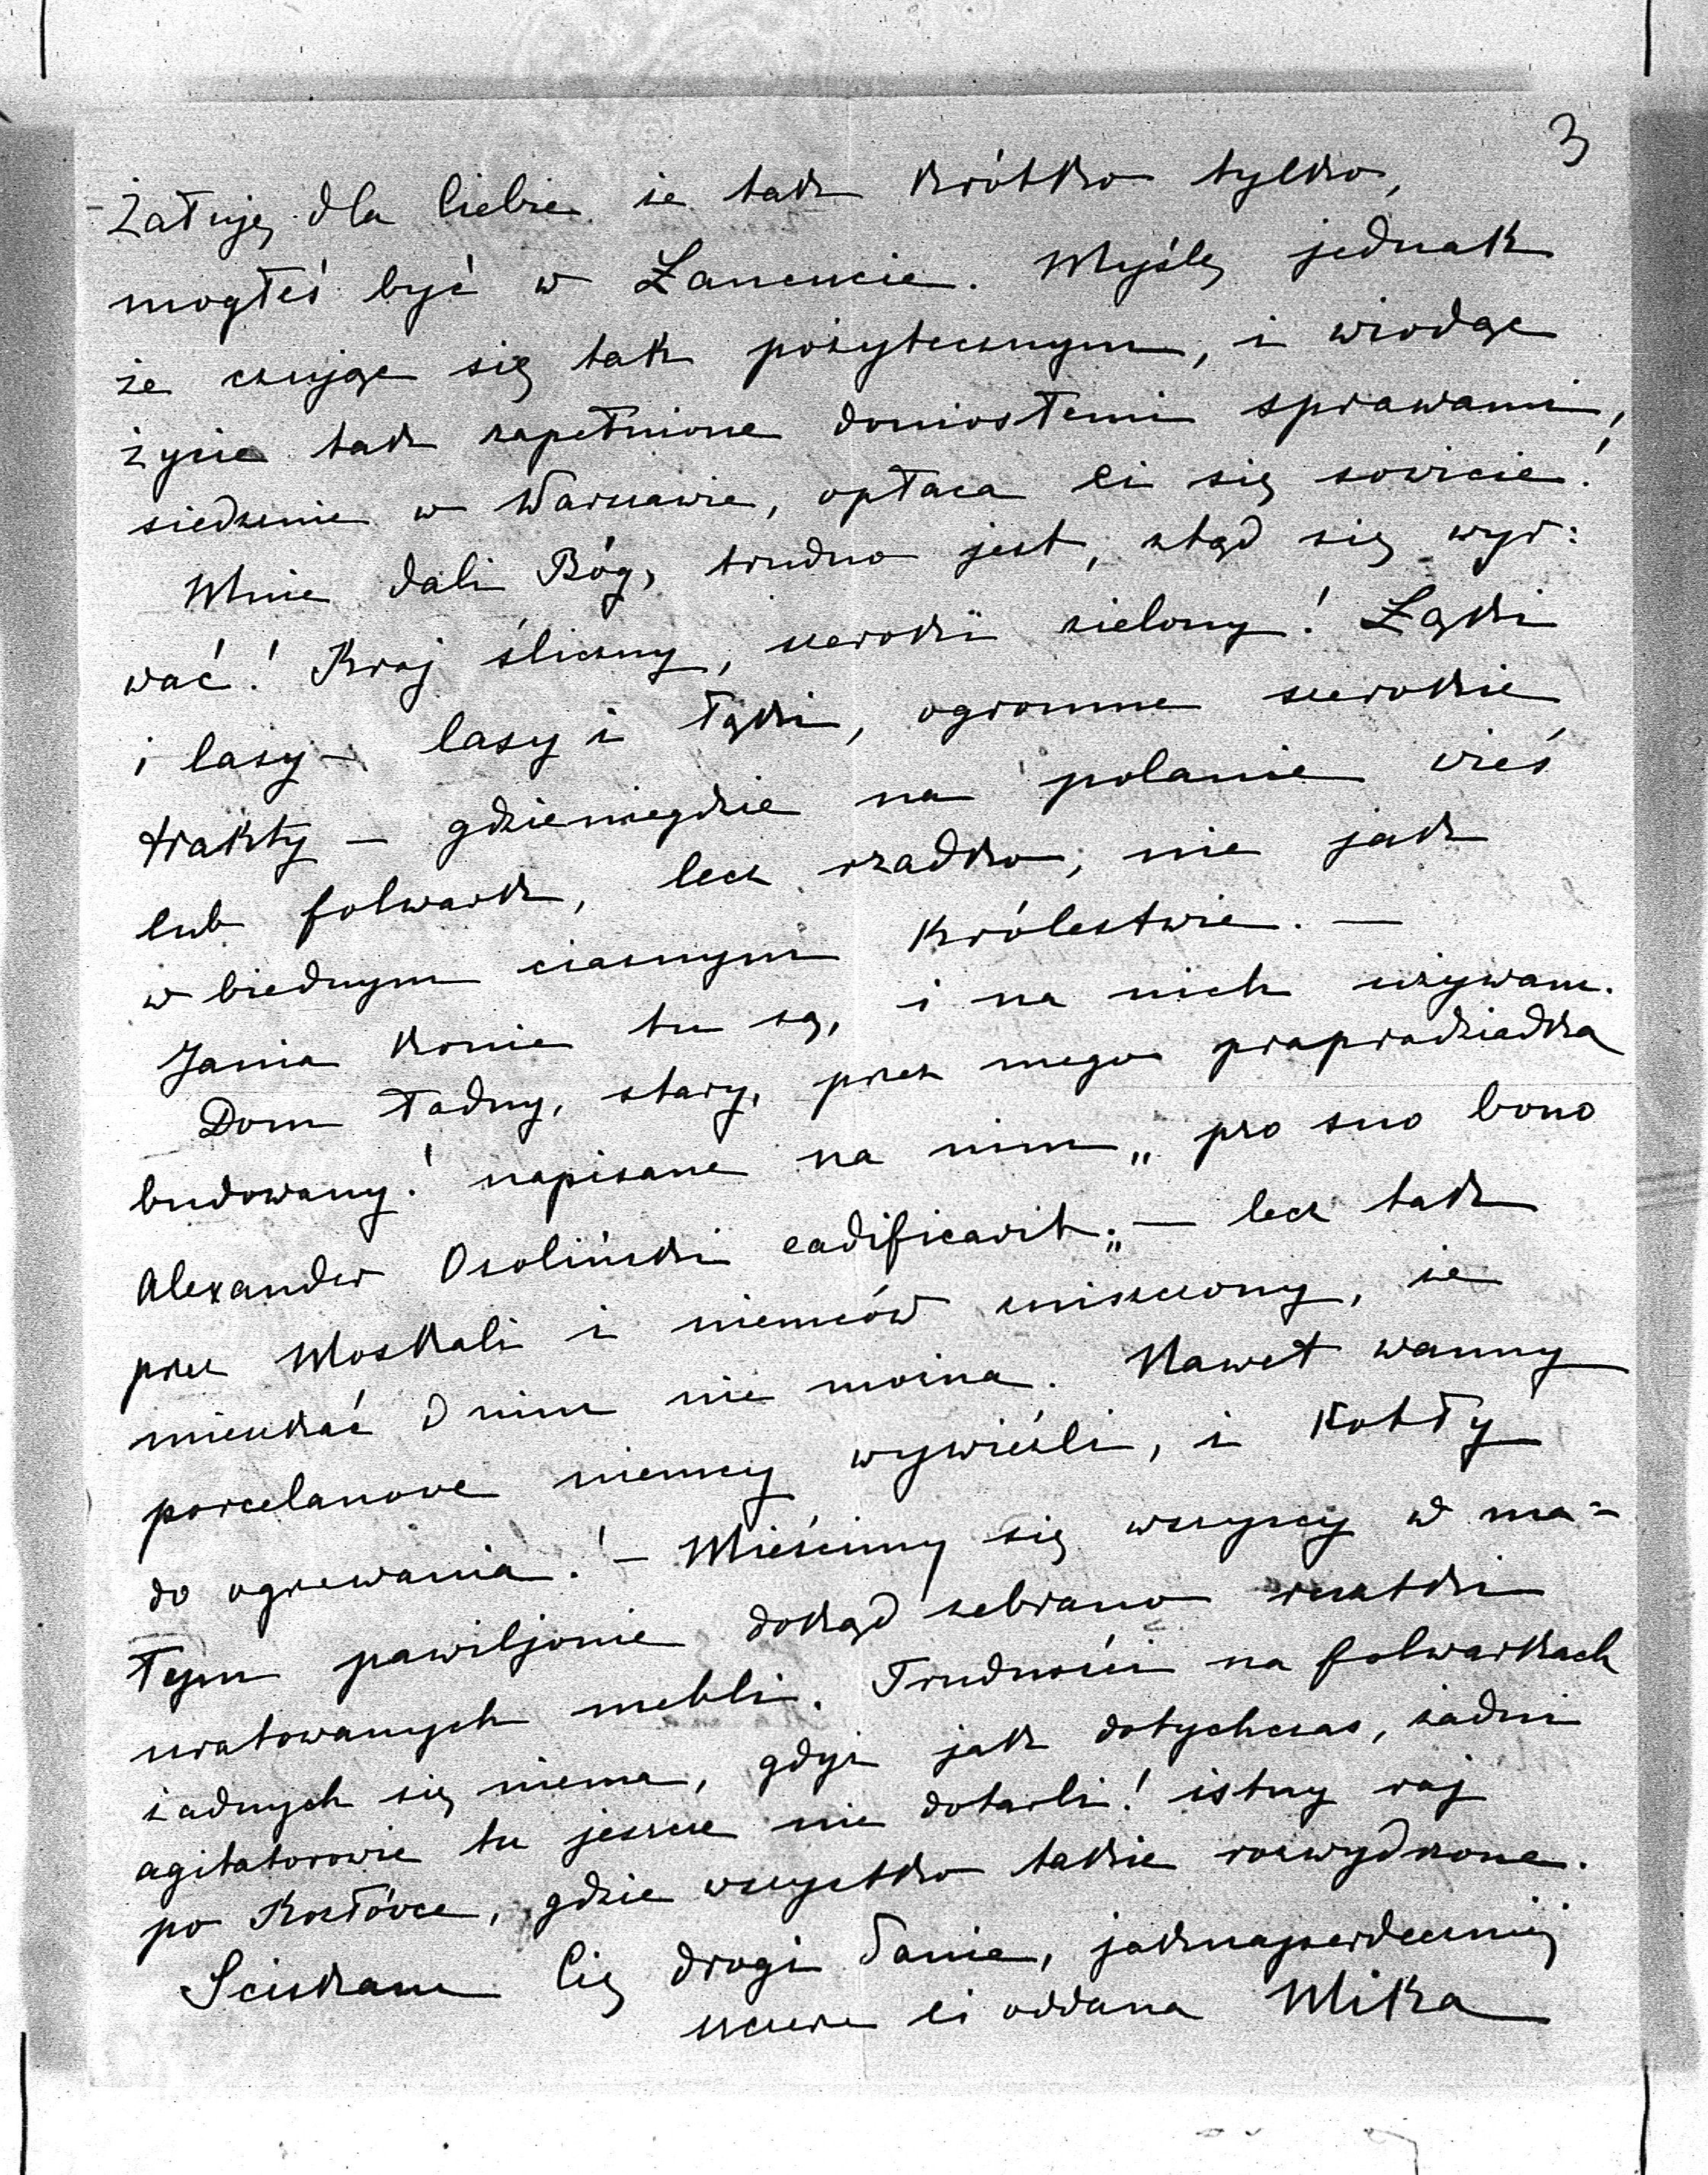 3
Żałuję dla Ciebie że tak krótko tylko,
mogłeś być w Łancucie. Myślę jednak
że czując się tak pożytecznym, i wiodąc
życie tak zapełnione doniosłemi sprawami,
siedzenie w Warszawie, opłaca Ci się sowicie!
Mnie dali Bóg, trudno jest, ztąd się wyr:
wać! Kraj śliczny, szeroki zielony! Łąki
i lasy – lasy i łąki, ogromne szerokie
trakty – gdzieniegdzie na polanie wieś
lub folwark, lecz rzadko, nie jak
w biednym ciasnym Królestwie. —
Jania konie tu są, i na nich używam.
Dom ładny, stary, przez mego prapradziadka
budowany! napisane na nim „pro suo bono
Alexander Osoliński eadificavit„ — lecz tak
przez Moskali i niemców zniszczony, że
mieszkać w nim nie można. Nawet wanny
porcelanowe niemcy wywieźli, i Kotły
do ogrzewania! – Mieścimy się wszyscy w ma=
łym pawiljonie dokąd zebrano resztki
uratowanych mebli. Trudności na folwarkach
żadnych się niema, gdyż jak dotychczas, żadni
agitatorowie tu jeszcze nie dotarli! istny raj
po Kozłówce, gdzie wszystko takie rozwydrzone.
Sciskam Cię drogi Panie, jaknajserdeczniej
szczerze Ci oddana Mika